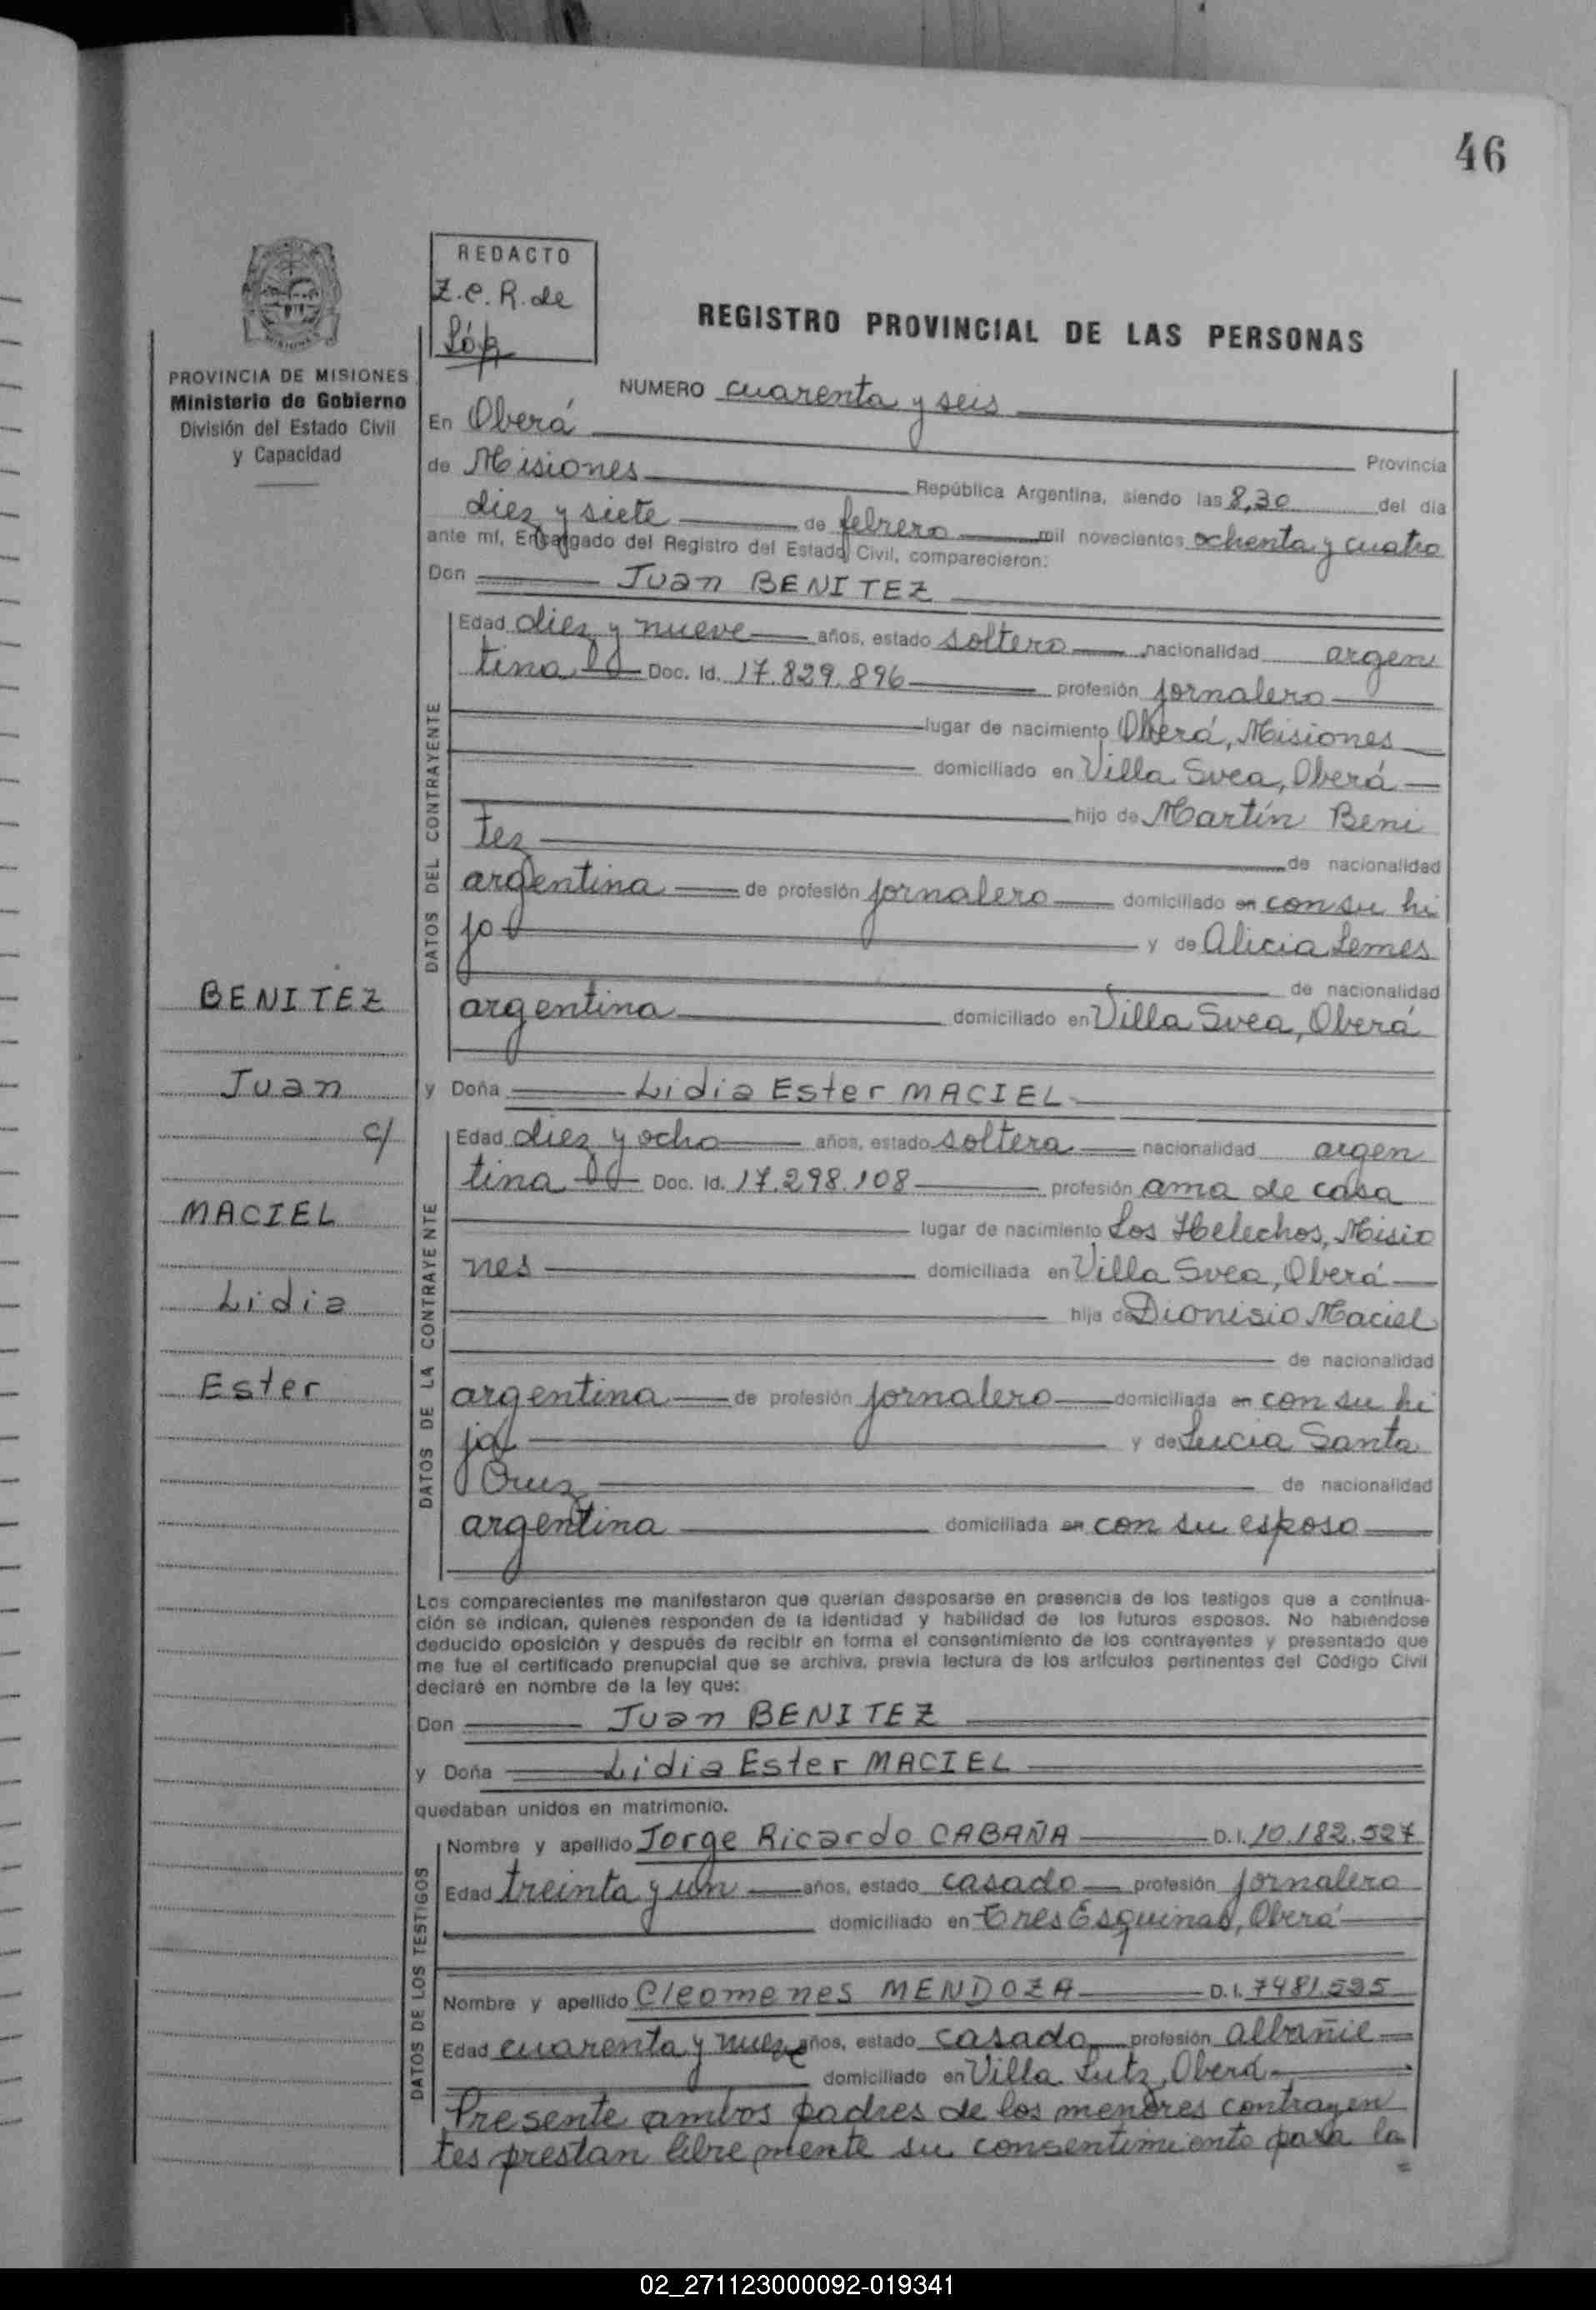 46
REDACTO
Z.C.R. de
Lóp
REGISTRO PROVINCIAL DE LAS PERSONAS
PROVINCIA DE MISIONES
Ministerio de Gobierno
División del Estado Civil
y Capacidad
NUMERO cuarenta y seis
En Oberá
Provincia
de Misiones República Argentina, siendo las 8,30 del día
diez y siete de febrero mil novecientos ochenta y cuatro
ante mí, Encargado del Registro del Estado Civil, comparecieron:
Don Juan BENITEZ
DATOS DEL CONTRAYENTE
Edad diez y nueve años, estado soltero nacionalidad argen
tina Doc. Id. 17.829.896 profesión jornalero
lugar de nacimiento Oberá, Misiones
domiciliado en Villa Svea, Oberá
hijo de Martín Beni
tez de nacionalidad
argentina de profesión jornalero domiciliado en con su hi
jo y de Alicia Lemes
de nacionalidad
argentina domiciliado en Villa Svea, Oberá
BENITEZ
Juan
c/
MACIEL
Lidia
Ester
y Doña Lidia Ester MACIEL
DATOS DE LA CONTRAYENTE
Edad diez y ocho años, estado soltera nacionalidad argen
tina Doc. Id. 17.298.108 profesión ama de casa
lugar de nacimiento Los Helechos, Misio
nes domiciliada en Villa Svea, Oberá
hija de Dionisio Maciel
de nacionalidad
argentina de profesión jornalero domiciliada en con su hi
ja y de Lucia Santa
Cruz de nacionalidad
argentina domiciliada en con su esposo
Los comparecientes me manifestaron que querían desposarse en presencia de los testigos que a continua-
ción se indican, quienes responden de la identidad y habilidad de los futuros esposos. No habiéndose
deducido oposición y después de recibir en forma el consentimiento de los contrayentes y presentado que
me fue el certificado prenupcial que se archiva, previa lectura de los artículos pertinentes del Código Civil
declaré en nombre de la ley que:
Don Juan BENITEZ
y Doña Lidia Ester MACIEL
quedaban unidos en matrimonio.
DATOS DE LOS TESTIGOS
Nombre y apellido Jorge Ricardo CABAÑA D.I. 10.182.527
Edad treinta y un años, estado casado profesión jornalero
domiciliado en Tres Esquinas, Oberá
Nombre y apellido Cleomenes MENDOZA D.I. 7481.535
Edad cuarenta y nueve años, estado casado profesión albañil
domiciliado en Villa Lutz, Oberá
Presente ambos padres de los menores contrayen
tes prestan libremente su consentimiento para la
02_271123000092-019341